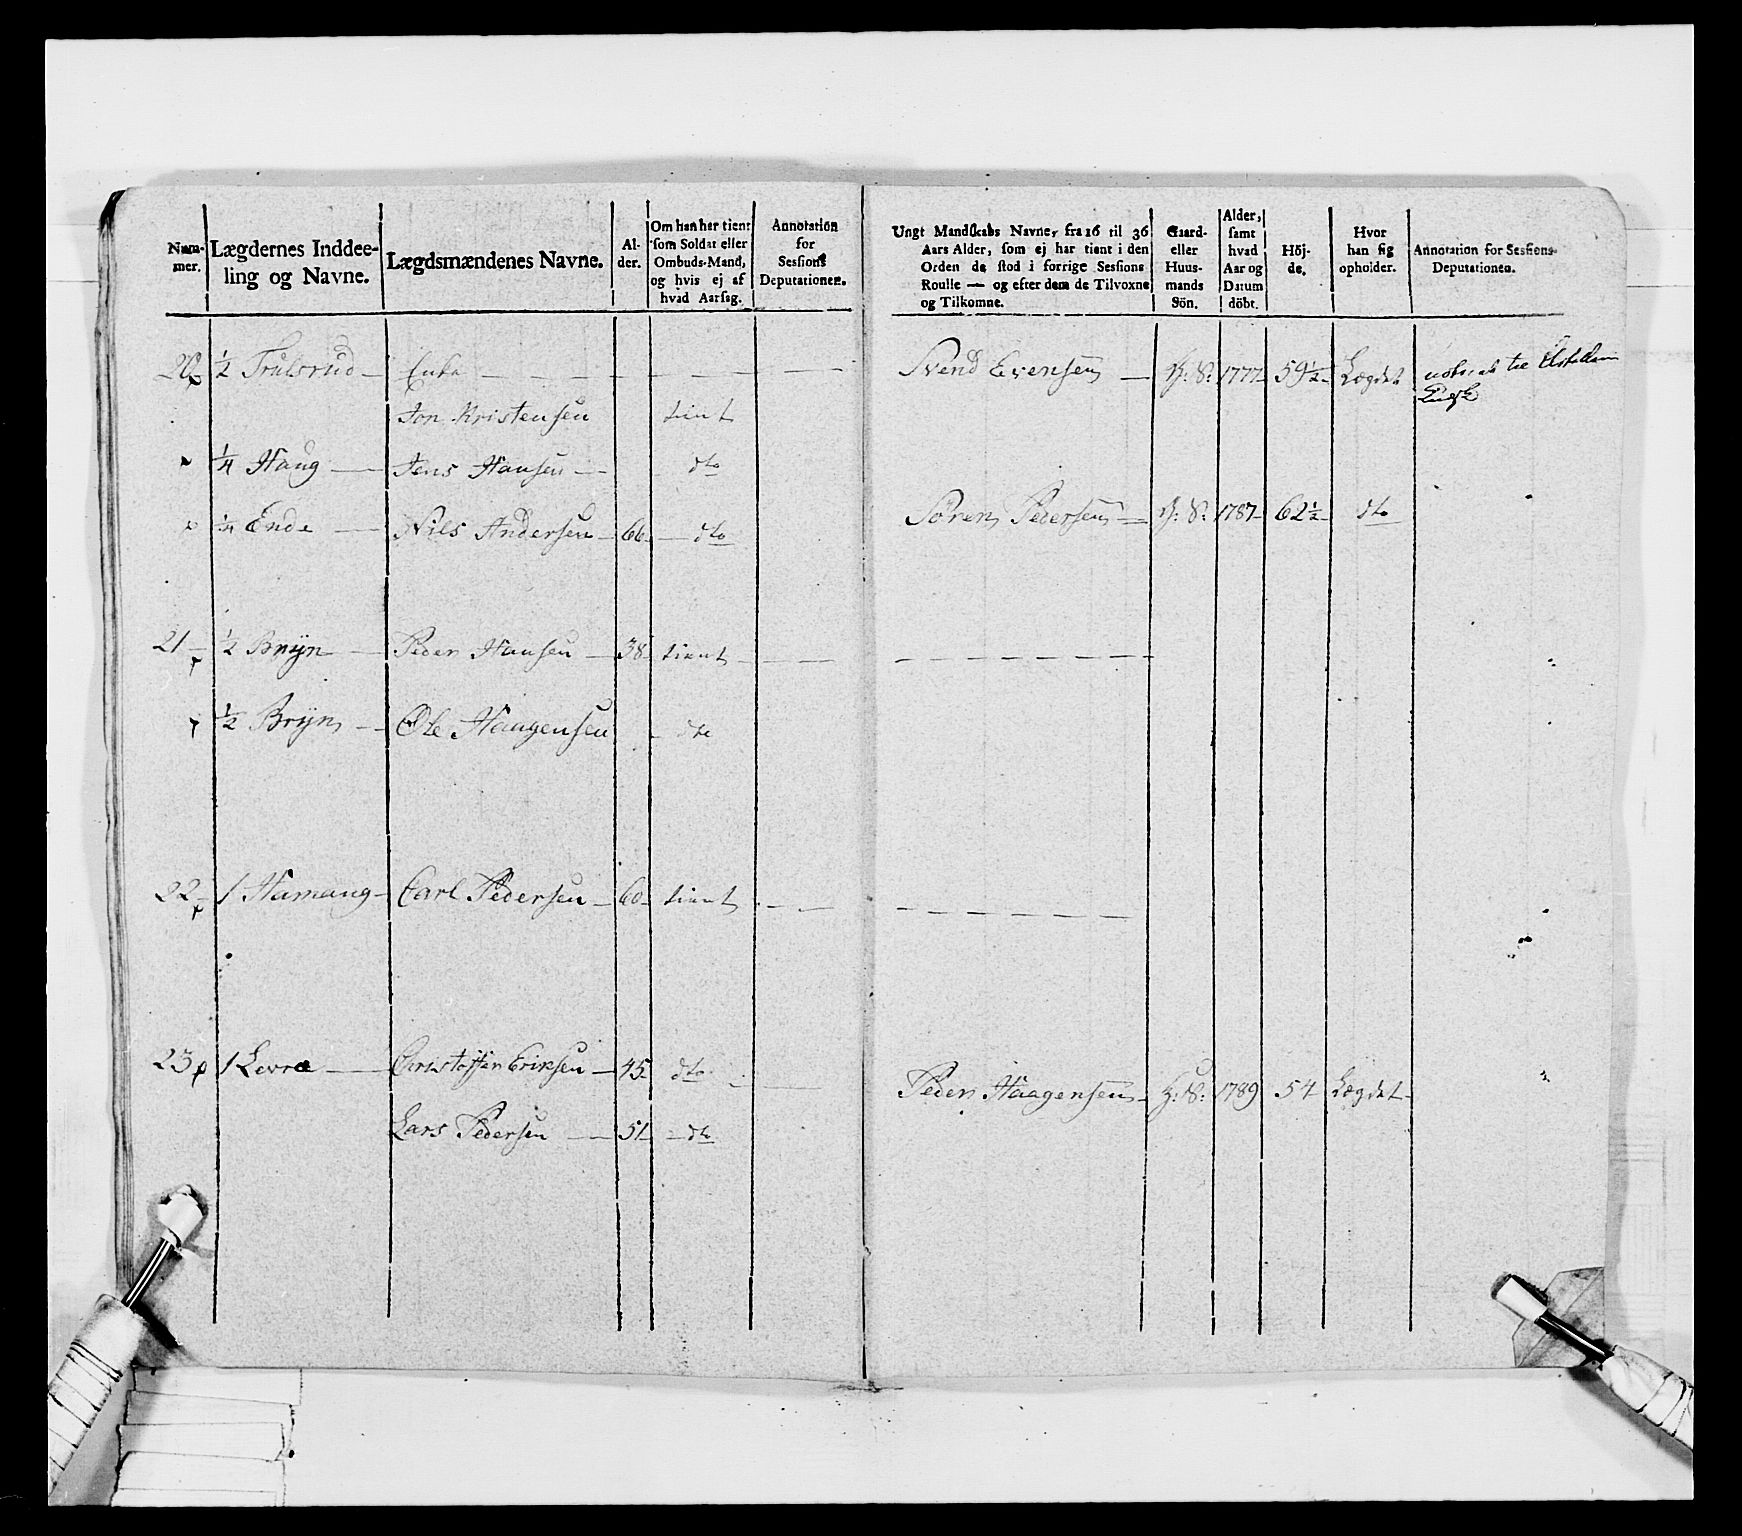 Num-
mer.
Lægdernes Inddee-
ling og Navne.
Lægdsmændenes Navne.
Al-
der.
Om han har tient
som Soldat eller
Ombuds-Mand,
og hvis ej af
hvad Aarsag.
Annotation
for
Sessions
Deputationen.
Ungt Mandskabs Navne, fra 16 til 36
Aars Alder, som ej har tient i den
Orden de stod i forrige Sessions
Roulle — og efter dem de Tilvoxne
og Tilkomne.
Gaard-
eller
Huus-
mands
Sön.
Alder,
samt
hvad
Aar og
Datum
döbt.
Höj-
de.
Hvor
han sig
opholder.
Annotation for Sessions-
Deputationen.
20 ½ Trulsrud — Enke — — — Svend Evensen — G: S: 1777 59½ Lægdet
Jon Kristensen tient
¼ Haug — Jens Hansen — dto
¼ Ende — Nils Andersen — 66 — dto Sören Pedersen — G: S: 1787 62½ dto
21 — ½ Bryn — Peder Hansen — 38 tient — — —
½ Bryn — Ole Haagensen — dto
22 — 1 Hamang — Carl Pedersen — 60 tient — — —
23 1 Levre — Christoffer Eriksen — 45 dto — Peder Haagensen — H: S: 1789 54 Lægdet
Lars Pedersen — 51 — dto